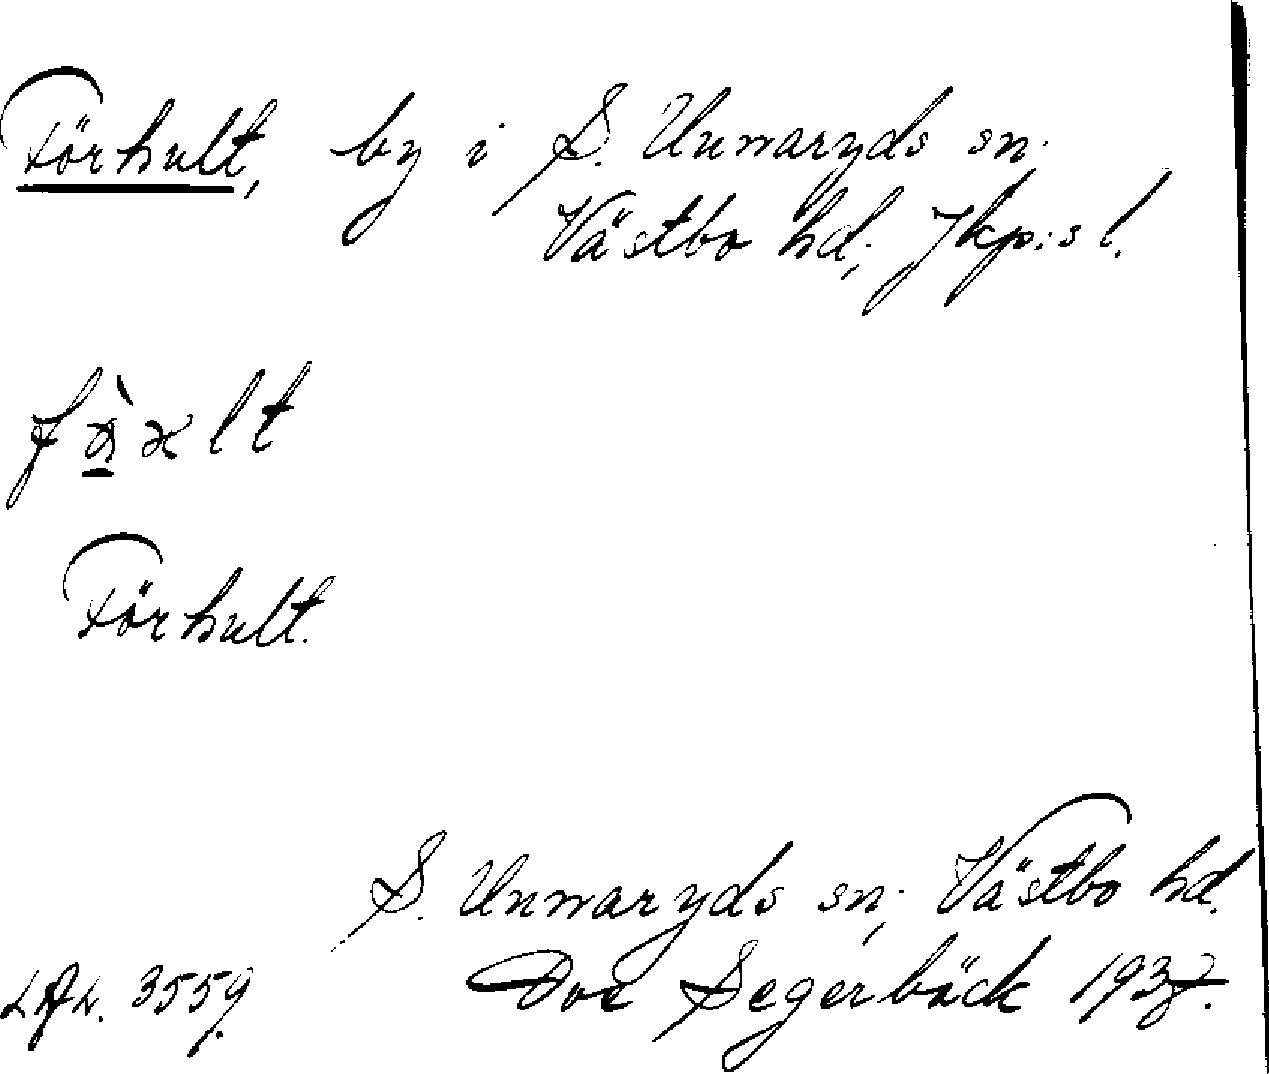 Förhult, by i S. Unnaryds sn.
Västbo hd, Jkp:s l.
Förhult.
S. Unnaryds sn, Västbo hd.
LAL. 3559. Dve Segerbäck 1937.